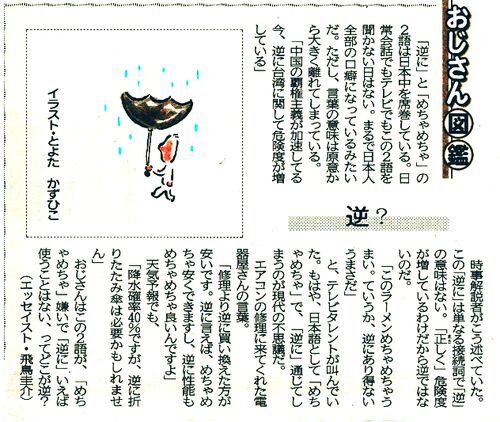 おじさん図鑑
「逆に」と「めちゃめちゃ」の
2語は日本中を席巻している。日
常会話でもテレビでもこの2語を
聞かない日はない。まるで日本人
全部の口癖になっているみたい
だ。ただし、言葉の意味は原意か
ら大きく離れてしまっている。
「中国の覇権主義が加速してる
今、逆に台湾に関して危険度が増
している」
イラスト・とよた　かずひこ
逆？
時事解説者がこう述べていた。
この「逆に」は単なる接続詞で「逆」
の意味はない。「正しく」危険度
が増しているわけだから逆ではな
いのだ。
「このラーメンめちゃめちゃう
まい。ていうか、逆にあり得ない
うまさだ」
と、テレビタレントが叫んでい
た。もはや、日本語として「めち
ゃめちゃ」で、「逆に」通じてし
まうのが現代の不思議だ。
エアコンの修理に来てくれた電
器屋さんの言葉。
「修理より逆に買い換えた方が
安いです。逆に言えば、めちゃめ
ちゃ安くできますし、逆に性能も
めちゃめちゃ良いんですよ」
天気予報でも、
「降水確率40％ですが、逆に折
りたたみ傘は必要かもしれませ
ん」
おじさんはこの2語が、「めち
ゃめちゃ」嫌いで「逆に」いえば
使うことはない、ってどこが逆？
（エッセイスト・飛鳥圭介）